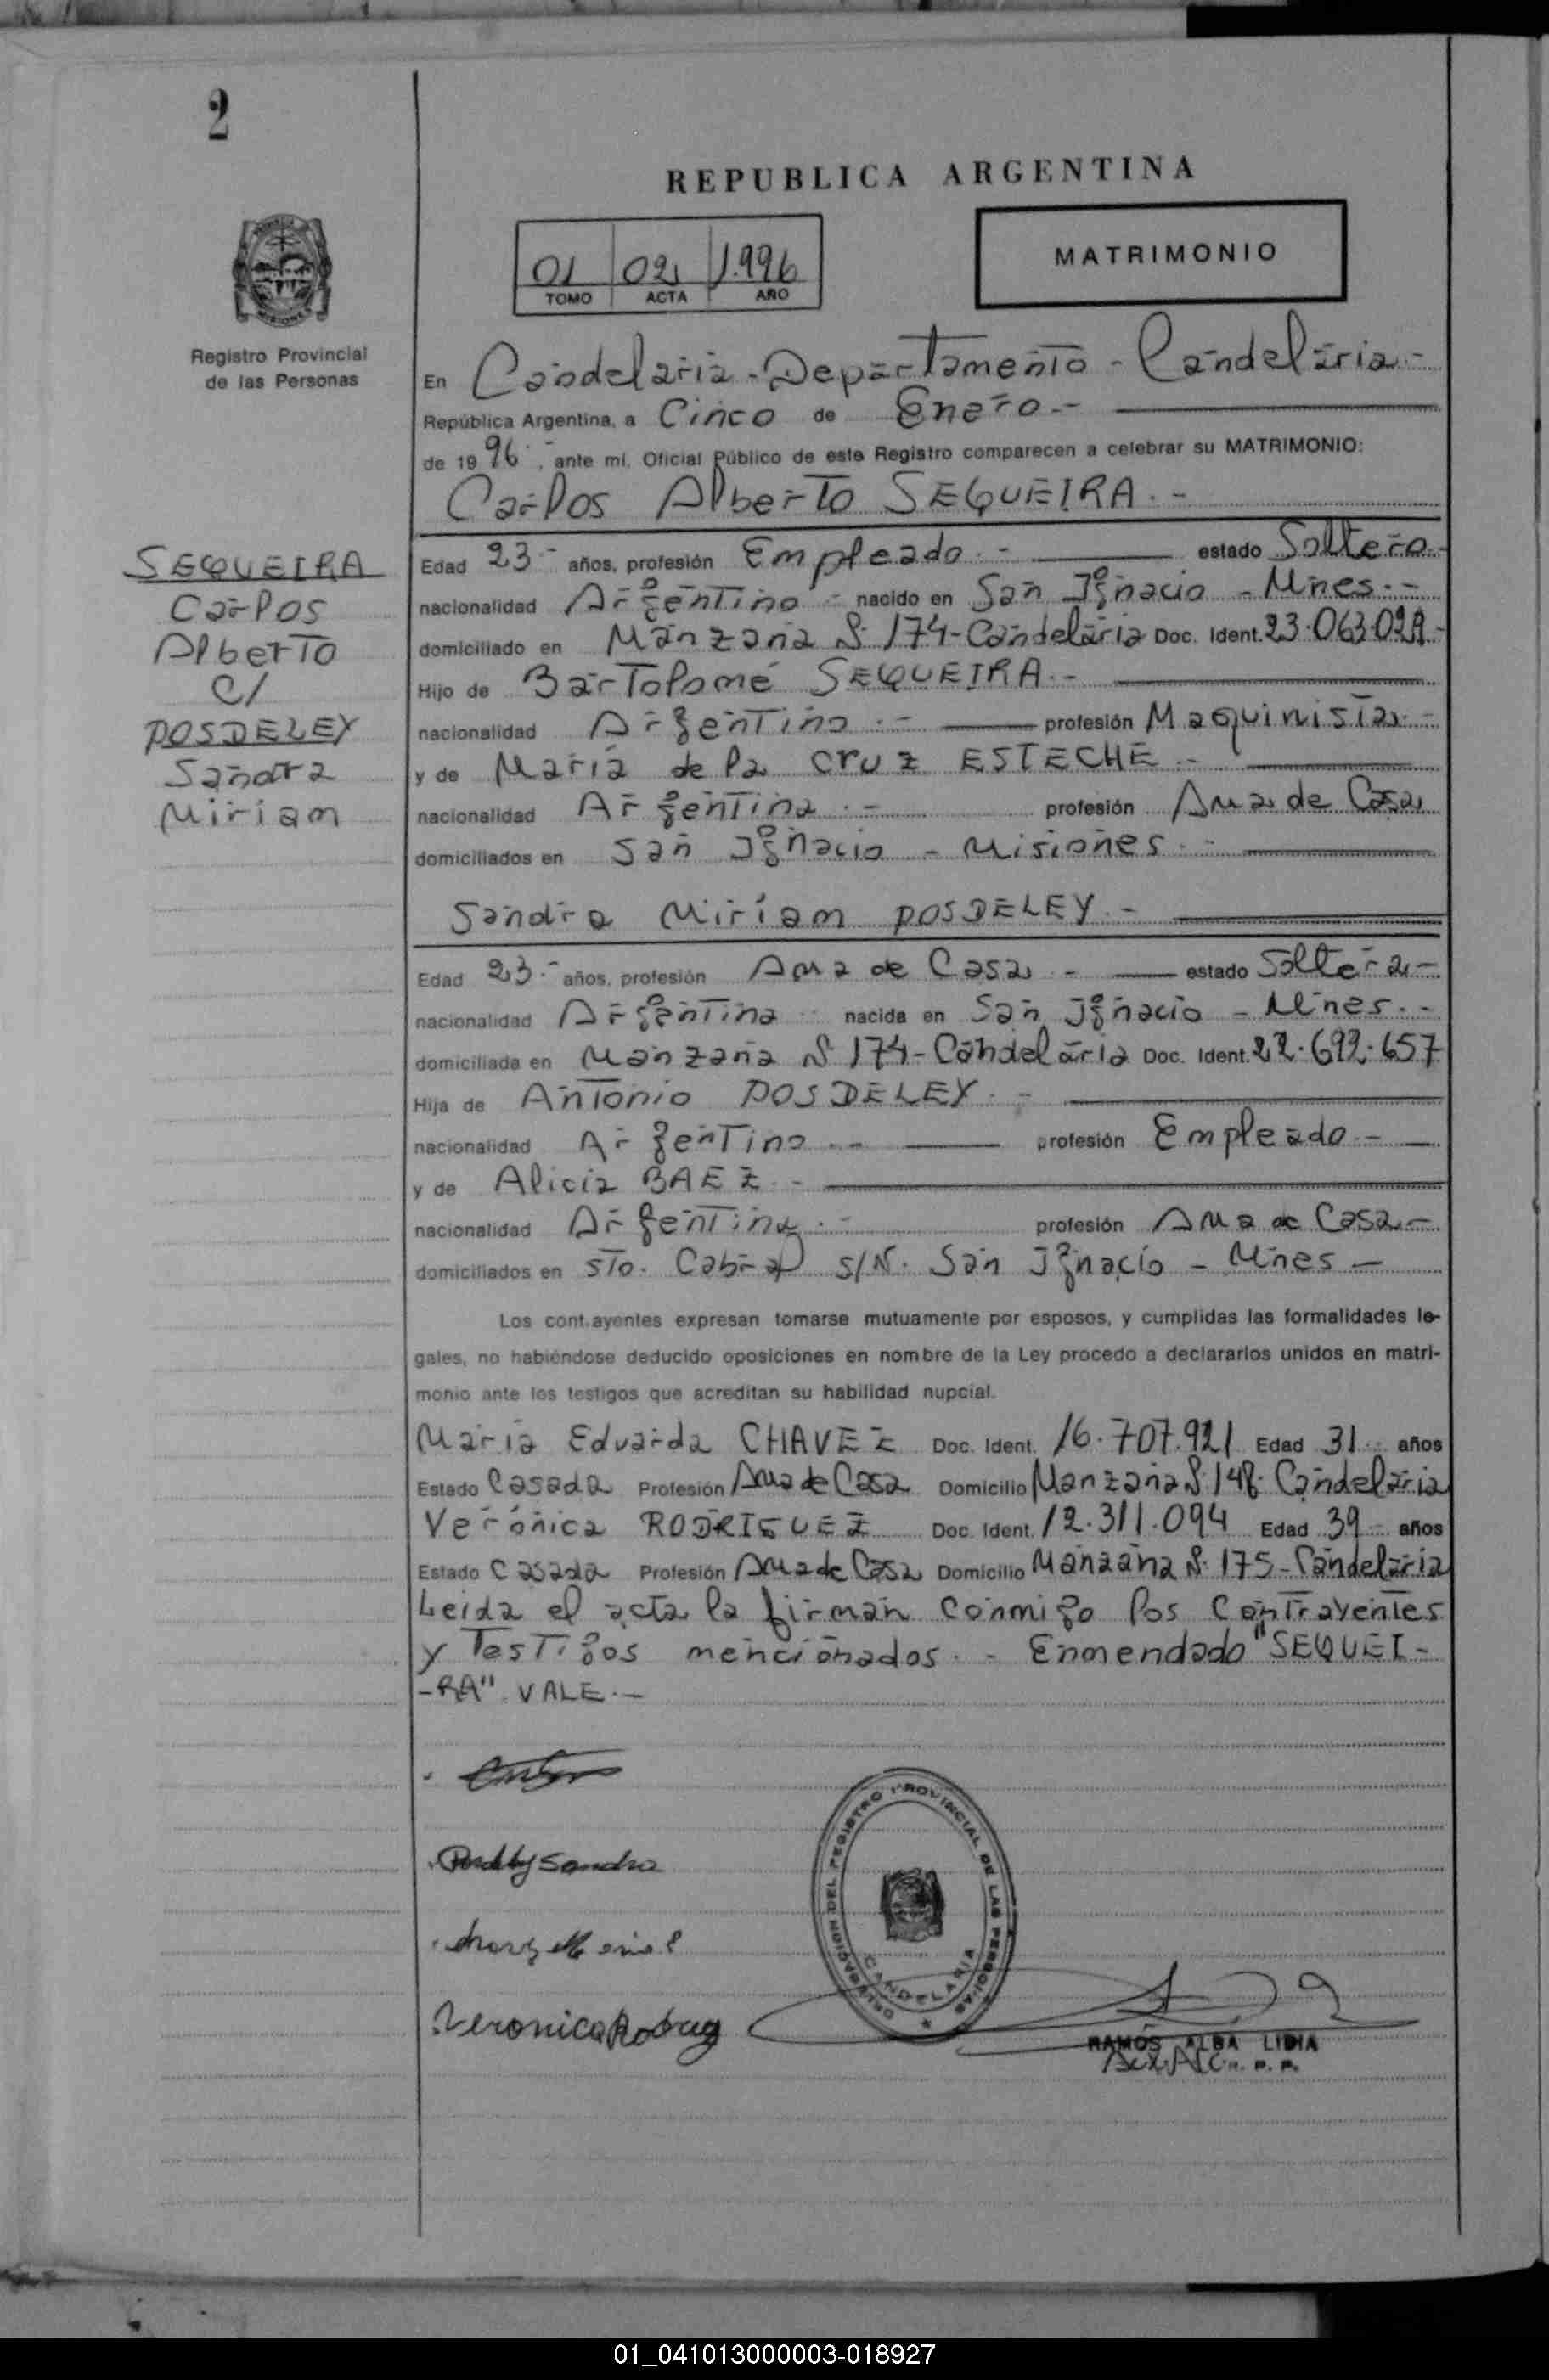 2
REPUBLICA ARGENTINA
01 02 1.996
TOMO ACTA AÑO
MATRIMONIO
Registro Provincial
de las Personas
En Candelaria - Departamento - Candelaria.-
República Argentina, a Cinco de Enero.-
de 1996.-, ante mí, Oficial Público de este Registro comparecen a celebrar su MATRIMONIO:
Carlos Alberto SEQUEIRA.-
SEQUEIRA
Carlos
Alberto
C/
POSDELEY
Sandra
Miriam
Edad 23.- años, profesión Empleado.- estado Soltero.-
nacionalidad Argentino.- nacido en San Ignacio - Mnes.-
domiciliado en Manzana S. 174-Candelaria Doc. Ident. 23.063.029.-
Hijo de Bartolomé SEQUEIRA.-
nacionalidad Argentino.- profesión Maquinista.-
y de María de la Cruz ESTECHE.-
nacionalidad Argentina.- profesión Ama de Casa
domiciliados en San Ignacio - Misiones.-
Sandra Miríam POSDELEY.-
Edad 23.- años, profesión Ama de Casa.- estado Soltera.-
nacionalidad Argentina nacida en San Ignacio - Mnes.-
domiciliada en Manzana S 174-Candelaria Doc. Ident. 22.692.657
Hija de Antonio POSDELEY.-
nacionalidad Argentino.- profesión Empleado.-
y de Alicia BAEZ.-
nacionalidad Argentina.- profesión Ama de Casa.-
domiciliados en sto. Cabral S/N. San Ignacio - Mnes -
Los contrayentes expresan tomarse mutuamente por esposos, y cumplidas las formalidades le-
gales, no habiéndose deducido oposiciones en nombre de la Ley procedo a declararlos unidos en matri-
monio ante los testigos que acreditan su habilidad nupcial.
María Eduarda CHAVEZ Doc. Ident. 16.707.921 Edad 31 años
Estado Casada Profesión Ama de Casa Domicilio Manzana S. 148. Candelaria
Verónica RODRIGUEZ Doc. Ident. 12.311.094 Edad 39 años
Estado Casada Profesión Ama de Casa Domicilio Manzana S. 175-Candelaria
Leida el acta la firman conmigo los Contrayentes
y Testigos mencionados.- Enmendado "SEQUEI-
-RA". VALE.-
Sandra
Veronica Rodrig
DELEGACION DEL REGISTRO PROVINCIAL DE LAS PERSONAS
CANDELARIA
RAMOS ALBA LIDIA
01_041013000003-018927